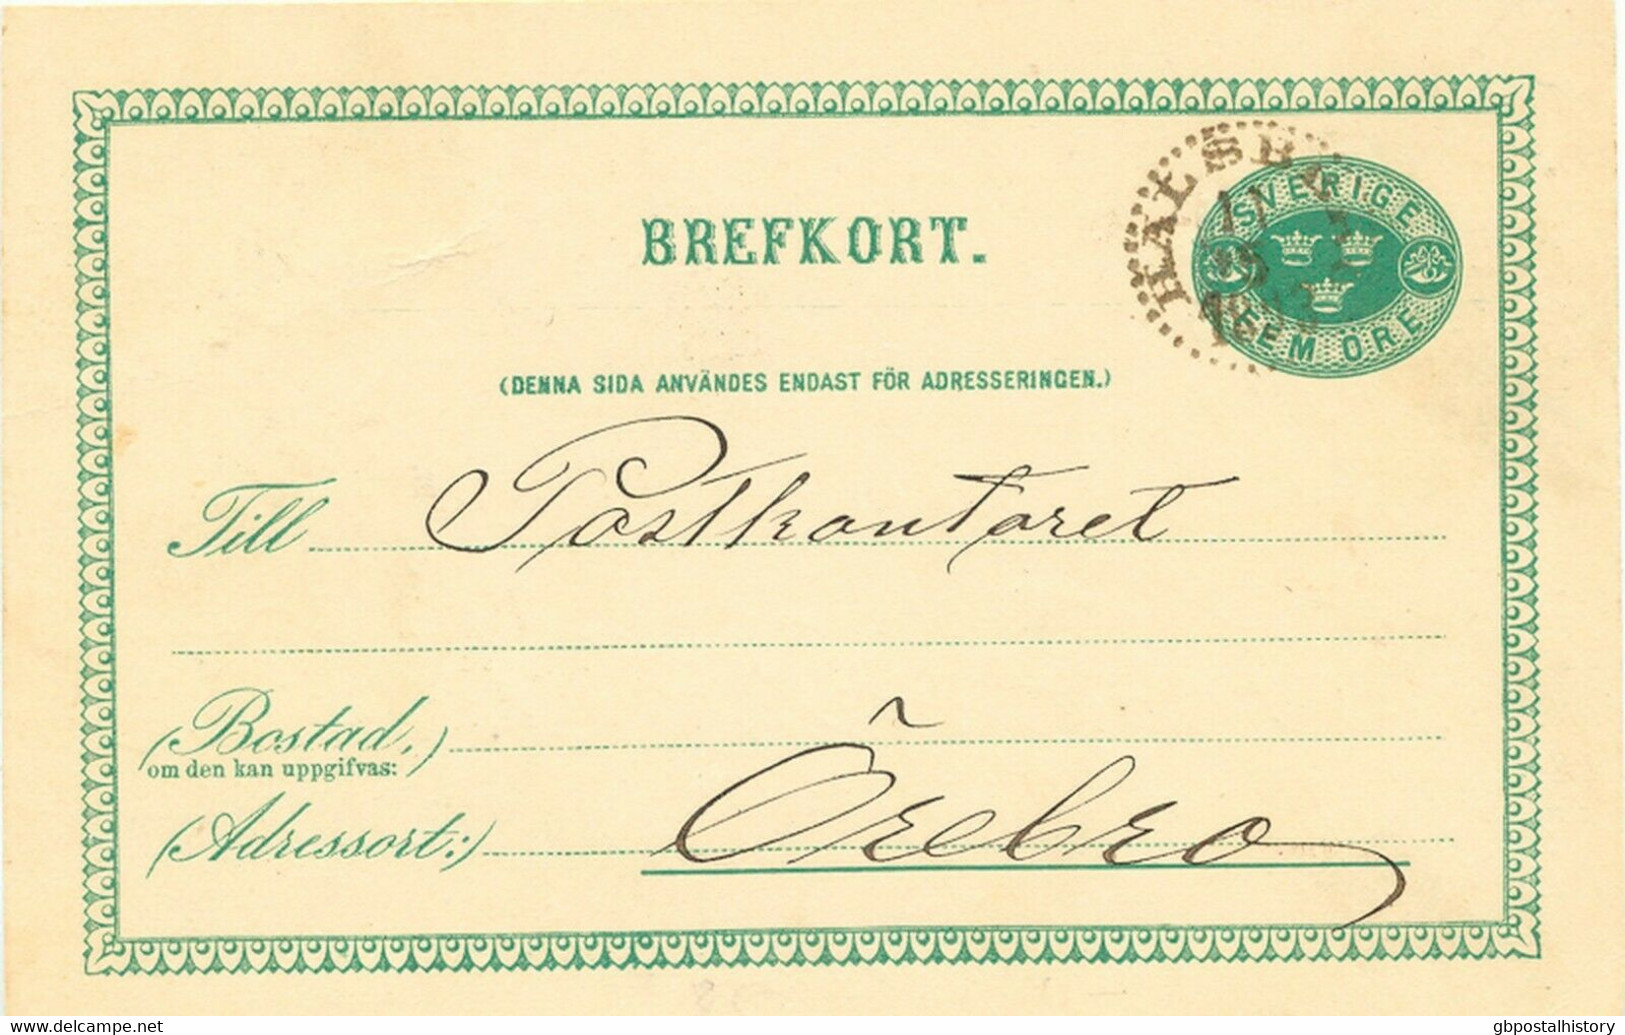 SVERIGE
BREFKORT.
FEM ÖRE
(DENNA SIDA ANVÄNDES ENDAST FÖR ADRESSERINGEN.)
Till Postkontoret
(Bostad,)
om den kan uppgifvas:
(Adressort:) Örebro
Delcampe.net
gbpostalhistory